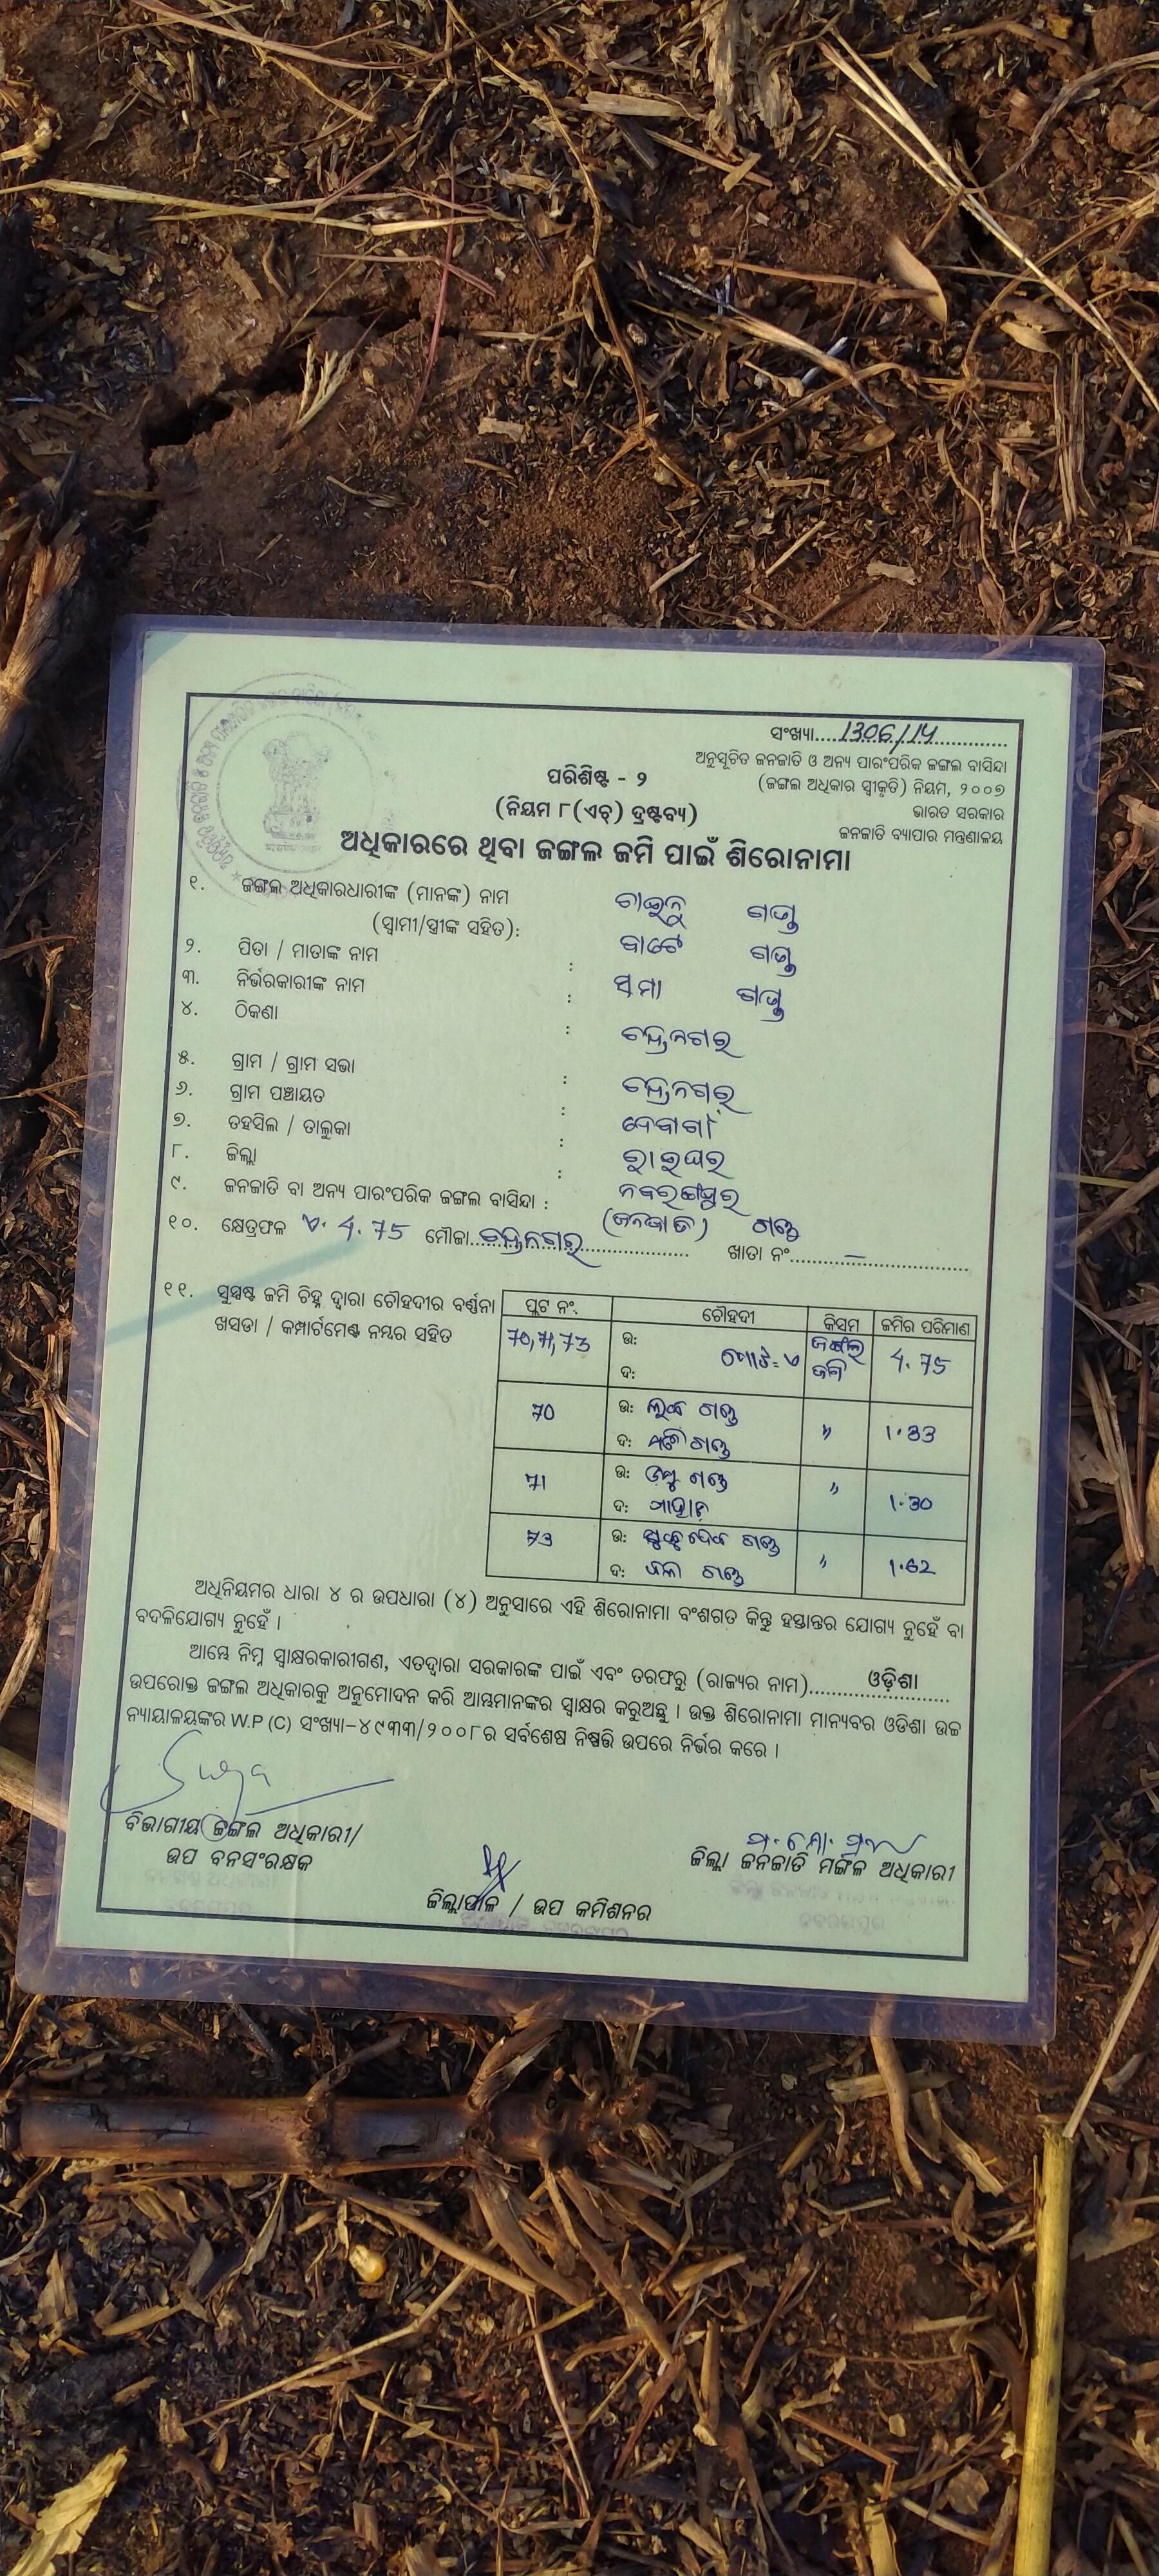 ସଂଖ୍ୟା....1306/14....
ଅନୁସୂଚିତ ଜନଜାତି ଓ ଅନ୍ୟ ପାରଂପରିକ ଜଙ୍ଗଲ ବାସିନ୍ଦା
(ଜଙ୍ଗଲ ଅଧିକାର ସ୍ୱୀକୃତି) ନିୟମ, ୨୦୦୭
ଭାରତ ସରକାର
ଜନଜାତି ବ୍ୟାପାର ମନ୍ତ୍ରଣାଳୟ
ପରିଶିଷ୍ଟ - ୨
(ନିୟମ ୮(ଏଚ୍) ଦ୍ରଷ୍ଟବ୍ୟ)
ଅଧିକାରରେ ଥିବା ଜଙ୍ଗଲ ଜମି ପାଇଁ ଶିରୋନାମା
୧. ଜଙ୍ଗଲ ଅଧିକାରଧାରୀଙ୍କ (ମାନଙ୍କ) ନାମ ଗଣ୍ଡ
(ସ୍ୱାମୀ/ସ୍ତ୍ରୀଙ୍କ ସହିତ):
୨. ପିତା / ମାତାଙ୍କ ନାମ : ଗଣ୍ଡ
୩. ନିର୍ଭରକାରୀଙ୍କ ନାମ : ଗଣ୍ଡ
୪. ଠିକଣା :
୫. ଗ୍ରାମ / ଗ୍ରାମ ସଭା :
୬. ଗ୍ରାମ ପଞ୍ଚାୟତ : ଦେବଗାଁ
୭. ତହସିଲ / ତାଲୁକା : ରାଇଘର
୮. ଜିଲ୍ଲା : ନବରଙ୍ଗପୁର
୯. ଜନଜାତି ବା ଅନ୍ୟ ପାରଂପରିକ ଜଙ୍ଗଲ ବାସିନ୍ଦା : (ଜନଜାତି) ଗଣ୍ଡ
୧୦. କ୍ଷେତ୍ରଫଳ ଏ. 4.75 ମୌଜା.... ଖାତା ନଂ....–....
୧୧. ସୁସ୍ପଷ୍ଟ ଜମି ଚିହ୍ନ ଦ୍ୱାରା ଚୌହଦୀର ବର୍ଣ୍ଣନା
ଖସଡା / କମ୍ପାର୍ଟମେଣ୍ଟ ନମ୍ବର ସହିତ
ପ୍ଲଟ ନଂ. ଚୌହଦୀ କିସମ ଜମିର ପରିମାଣ
70,71,73 ଉ: ଦ: ମୋଟ=ଏ ଜଙ୍ଗଲ ଜମି 4.75
70 ଉ: ଗଣ୍ଡ ଦ: ଗଣ୍ଡ " 1.83
71 ଉ: ଗଣ୍ଡ ଦ: " 1.30
73 ଉ: ଗଣ୍ଡ ଦ: ଗଣ୍ଡ " 1.62
ଅଧିନିୟମର ଧାରା ୪ ର ଉପଧାରା (୪) ଅନୁସାରେ ଏହି ଶିରୋନାମା ବଂଶଗତ କିନ୍ତୁ ହସ୍ତାନ୍ତର ଯୋଗ୍ୟ ନୁହେଁ ବା
ବଦଳିଯୋଗ୍ୟ ନୁହେଁ ।
ଆମ୍ଭେ ନିମ୍ନ ସ୍ୱାକ୍ଷରକାରୀଗଣ, ଏତଦ୍ୱାରା ସରକାରଙ୍କ ପାଇଁ ଏବଂ ତରଫରୁ (ରାଜ୍ୟର ନାମ)....ଓଡ଼ିଶା....
ଉପରୋକ୍ତ ଜଙ୍ଗଲ ଅଧିକାରକୁ ଅନୁମୋଦନ କରି ଆମ୍ଭମାନଙ୍କର ସ୍ୱାକ୍ଷର କରୁଅଛୁ । ଉକ୍ତ ଶିରୋନାମା ମାନ୍ୟବର ଓଡିଶା ଉଚ୍ଚ
ନ୍ୟାୟାଳୟଙ୍କର W.P (C) ସଂଖ୍ୟା-୪୯୩୩/୨୦୦୮ର ସର୍ବଶେଷ ନିଷ୍ପତ୍ତି ଉପରେ ନିର୍ଭର କରେ ।
ବିଭାଗୀୟ ଜଙ୍ଗଲ ଅଧିକାରୀ/
ଉପ ବନସଂରକ୍ଷକ
ଜିଲ୍ଲାପାଳ / ଉପ କମିଶନର
ଜିଲ୍ଲା ଜନଜାତି ମଙ୍ଗଳ ଅଧିକାରୀ